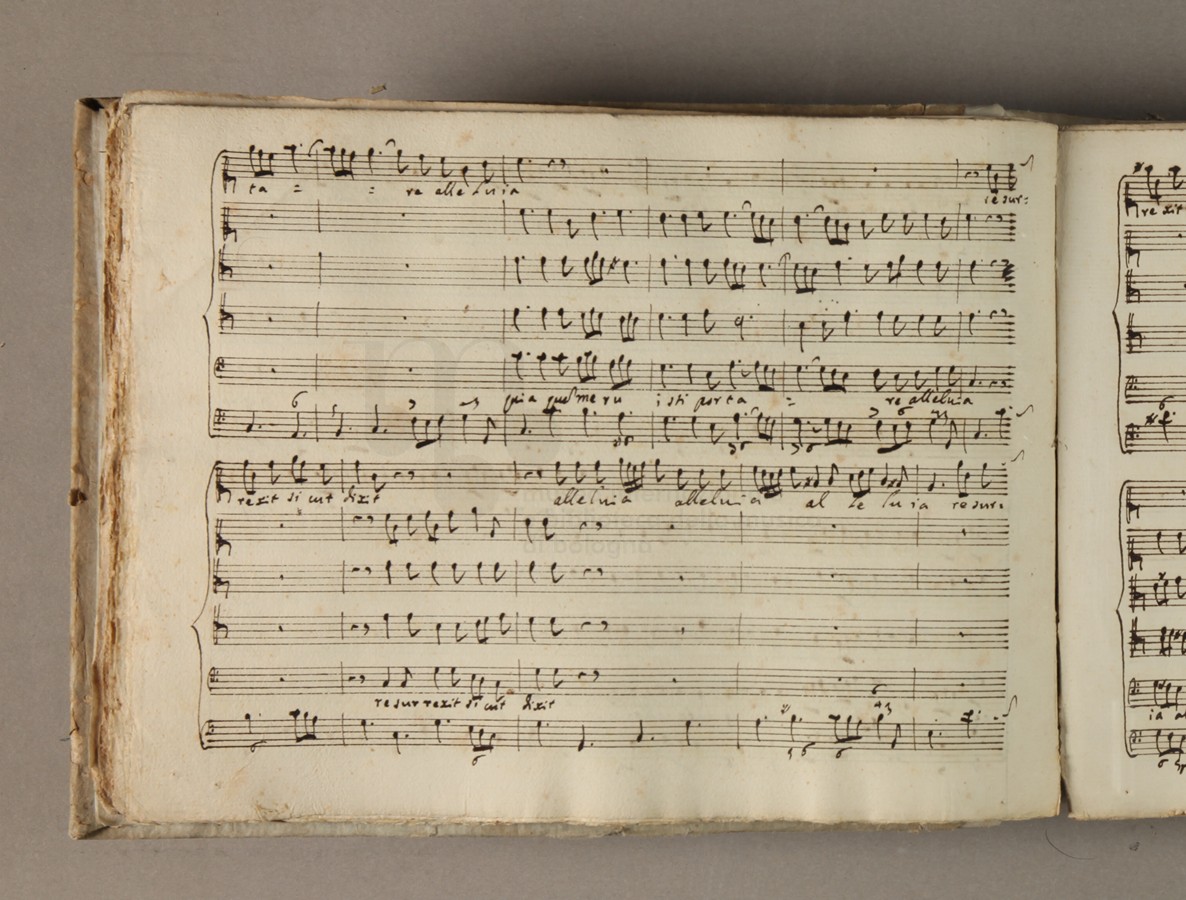 ta = = re alleluia resur:
quia quem meru isti porta = re alleluia
rexit sicut dixit alleluia alleluia al le luia resur:
resurrexit sicut dixit
rexit
ia al